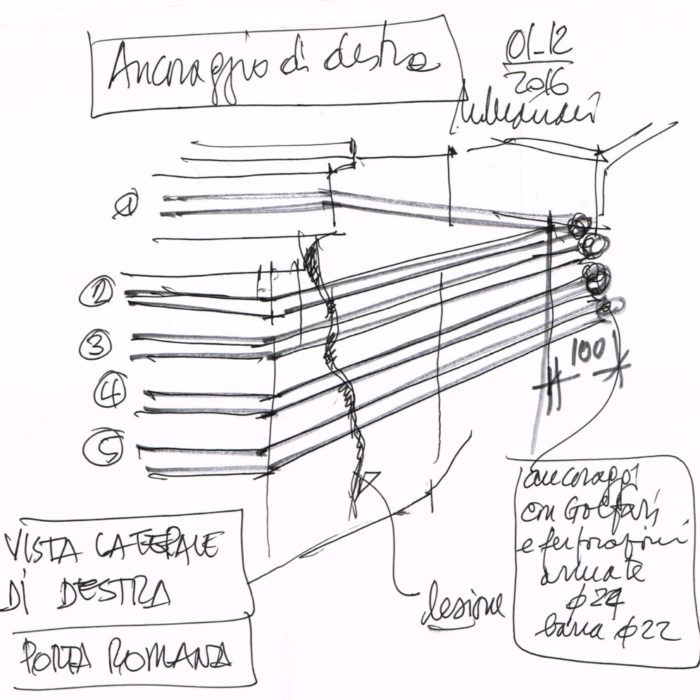 Ancoraggio di destra
01-12
2016
1
2
3
4
5
100
ancoraggi
con Golfari
e perforazioni
armate
φ24
barra φ22
lesione
VISTA LATERALE
DI DESTRA
PORTA ROMANA